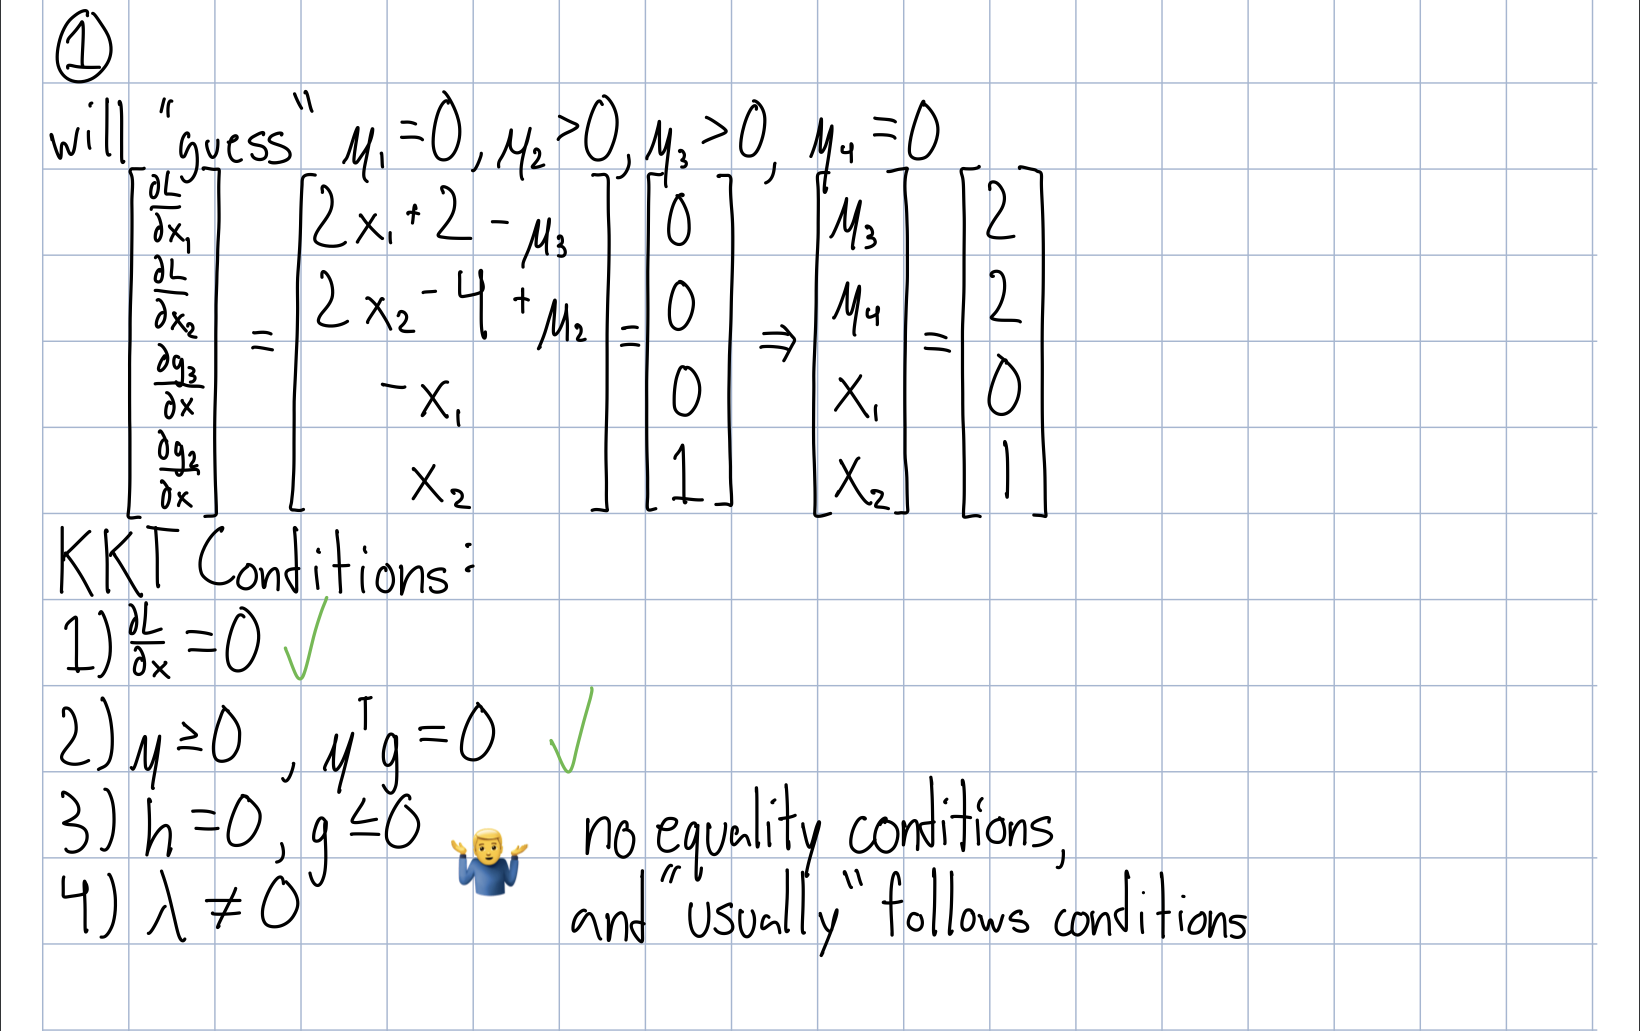 ①
will "guess" μ₁ = 0, μ₂ > 0, μ₃ > 0, μ₄ = 0
[∂L/∂x₁; ∂L/∂x₂; ∂g₃/∂x; ∂g₂/∂x] = [2x₁ + 2 - μ₃; 2x₂ - 4 + μ₂; -x₁; x₂] = [0; 0; 0; 1] ⇒ [μ₃; μ₄; x₁; x₂] = [2; 2; 0; 1]
KKT Conditions:
1) ∂L/∂x = 0 ✓
2) μ ≥ 0, μᵀg = 0 ✓
3) h = 0, g ≤ 0 🤷‍♂️ no equality conditions,
4) λ ≠ 0 and "usually" follows conditions